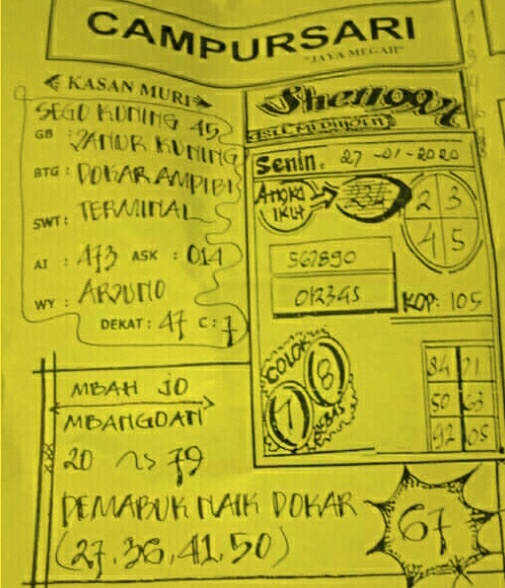 CAMPURSARI
"JAYA MEGAH"
KASAN MURI
SEGO KUNING 45
GB : JANUR KUNING
BTG : DOKAR AMPIBI
SWT : TERMINAL
AI : 473 ASK : 014
WY : ARJUNO
DEKAT : 47 C : 7
Senin. 27-01-2020
ANGKA IKUT
234
2 3
4 5
567890
012345
KOP: 105
COLOK
1 8
BEBAS
84 71
50 63
92 05
MBAH JO
MBANGDAN
20 79
PEMABUK NAIK DOKAR
(27.36.41.50)
67